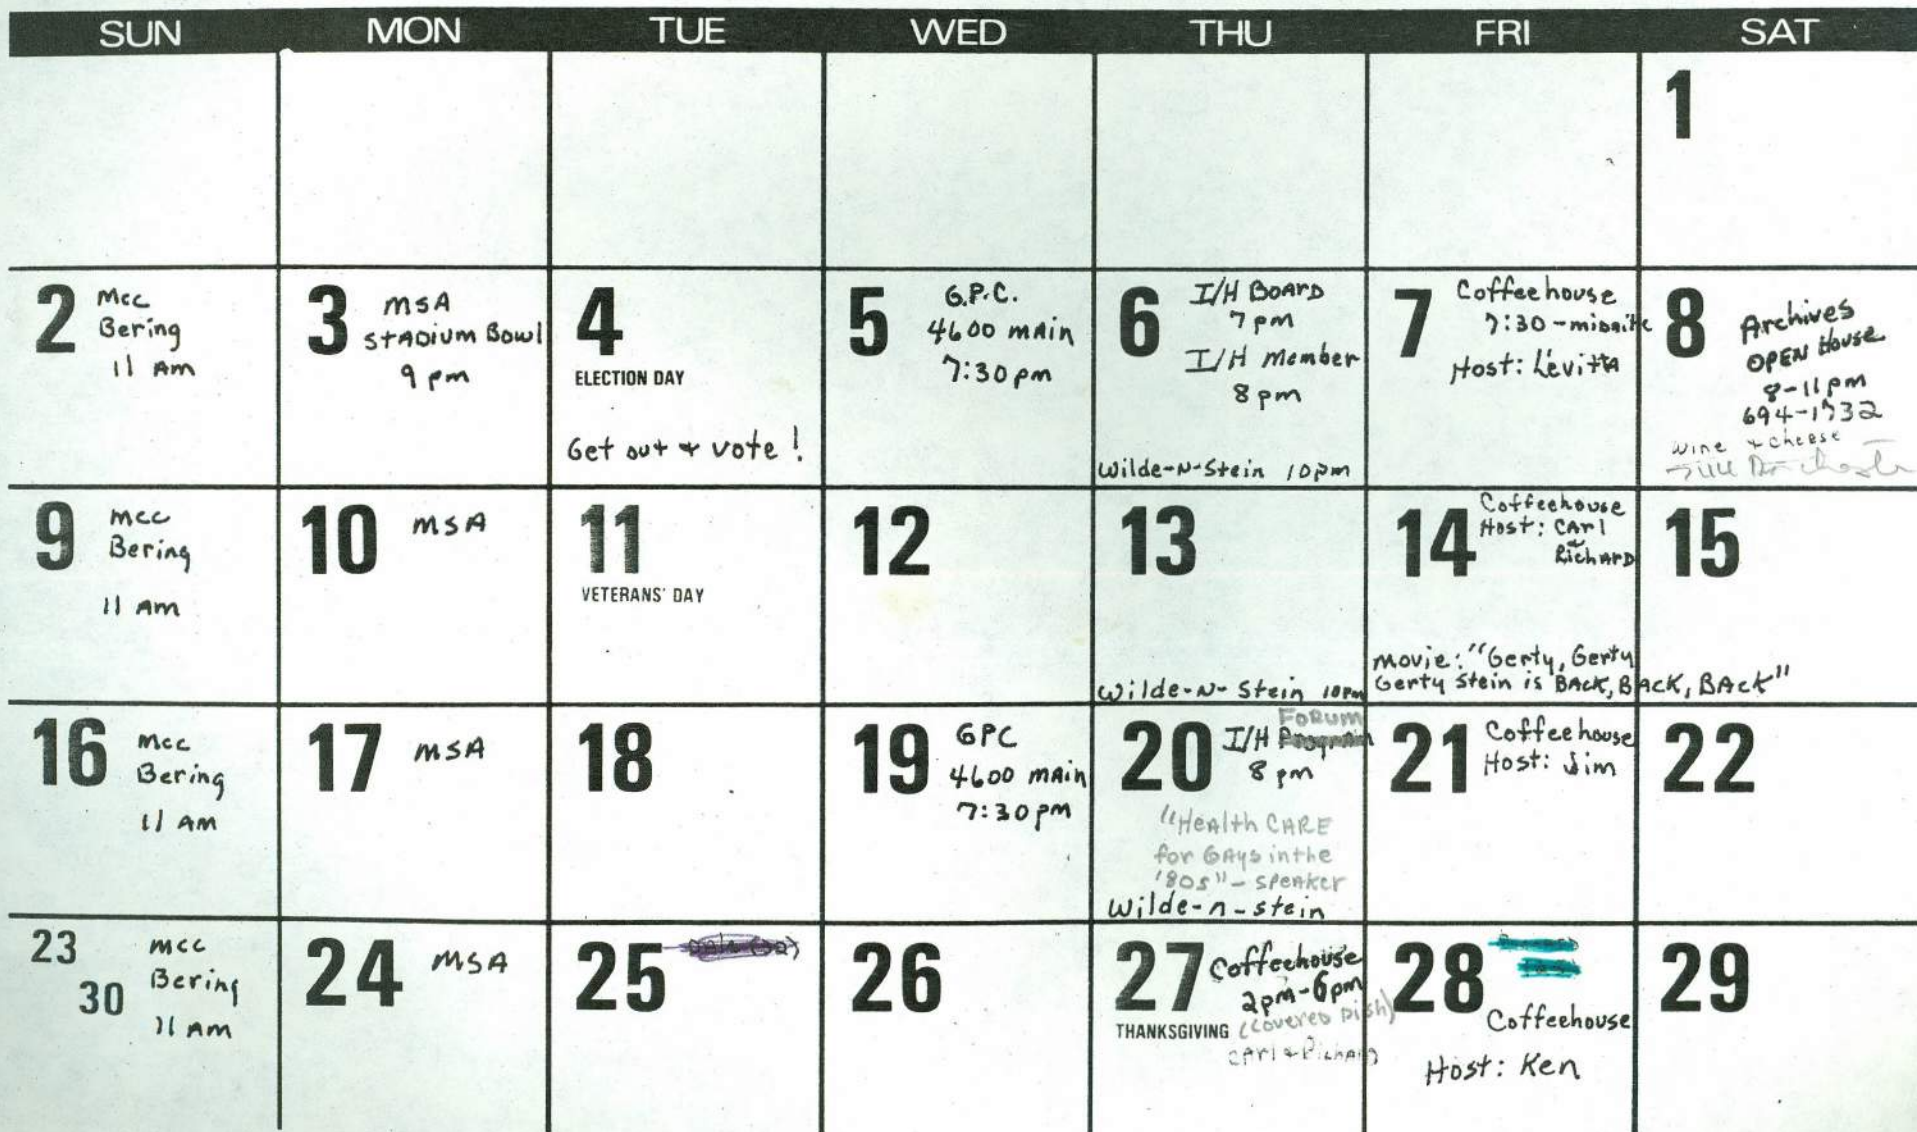 SUN MON TUE WED THU FRI SAT
1
2 Mcc
Bering
11 Am
3 MSA
STADIUM Bowl
9 pm
4
ELECTION DAY
Get out + vote !
5 G.P.C.
4600 main
7:30 pm
6 I/H BOARD
7 pm
I/H Member
8 pm
Wilde-N-Stein 10pm
7 Coffeehouse
7:30 - midnite
Host: Levitta
8 Archives
OPEN House
8-11 pm
694-1732
wine + cheese
9 mcc
Bering
11 Am
10 MSA
11
VETERANS' DAY
12
13
Wilde-N- Stein 10pm
14 Coffeehouse
Host: CArl
+
RichARD
movie: "Gerty, Gerty
Gerty Stein is BAck, BACK, BAck"
15
16 Mcc
Bering
11 AM
17 MSA
18
19 GPC
4600 mAin
7:30 pm
20 FORUM
I/H Program
8 pm
"HeAlth CARE
for GAys in the
'80s" - speaker
Wilde-n-stein
21 Coffeehouse
Host: Jim
22
23
30
mcc
Bering
11 Am
24 MSA
25
26
27 Coffeehouse
2pm-6pm
THANKSGIVING (covered Dish)
CArl + Richard
28
Coffeehouse
Host: Ken
29